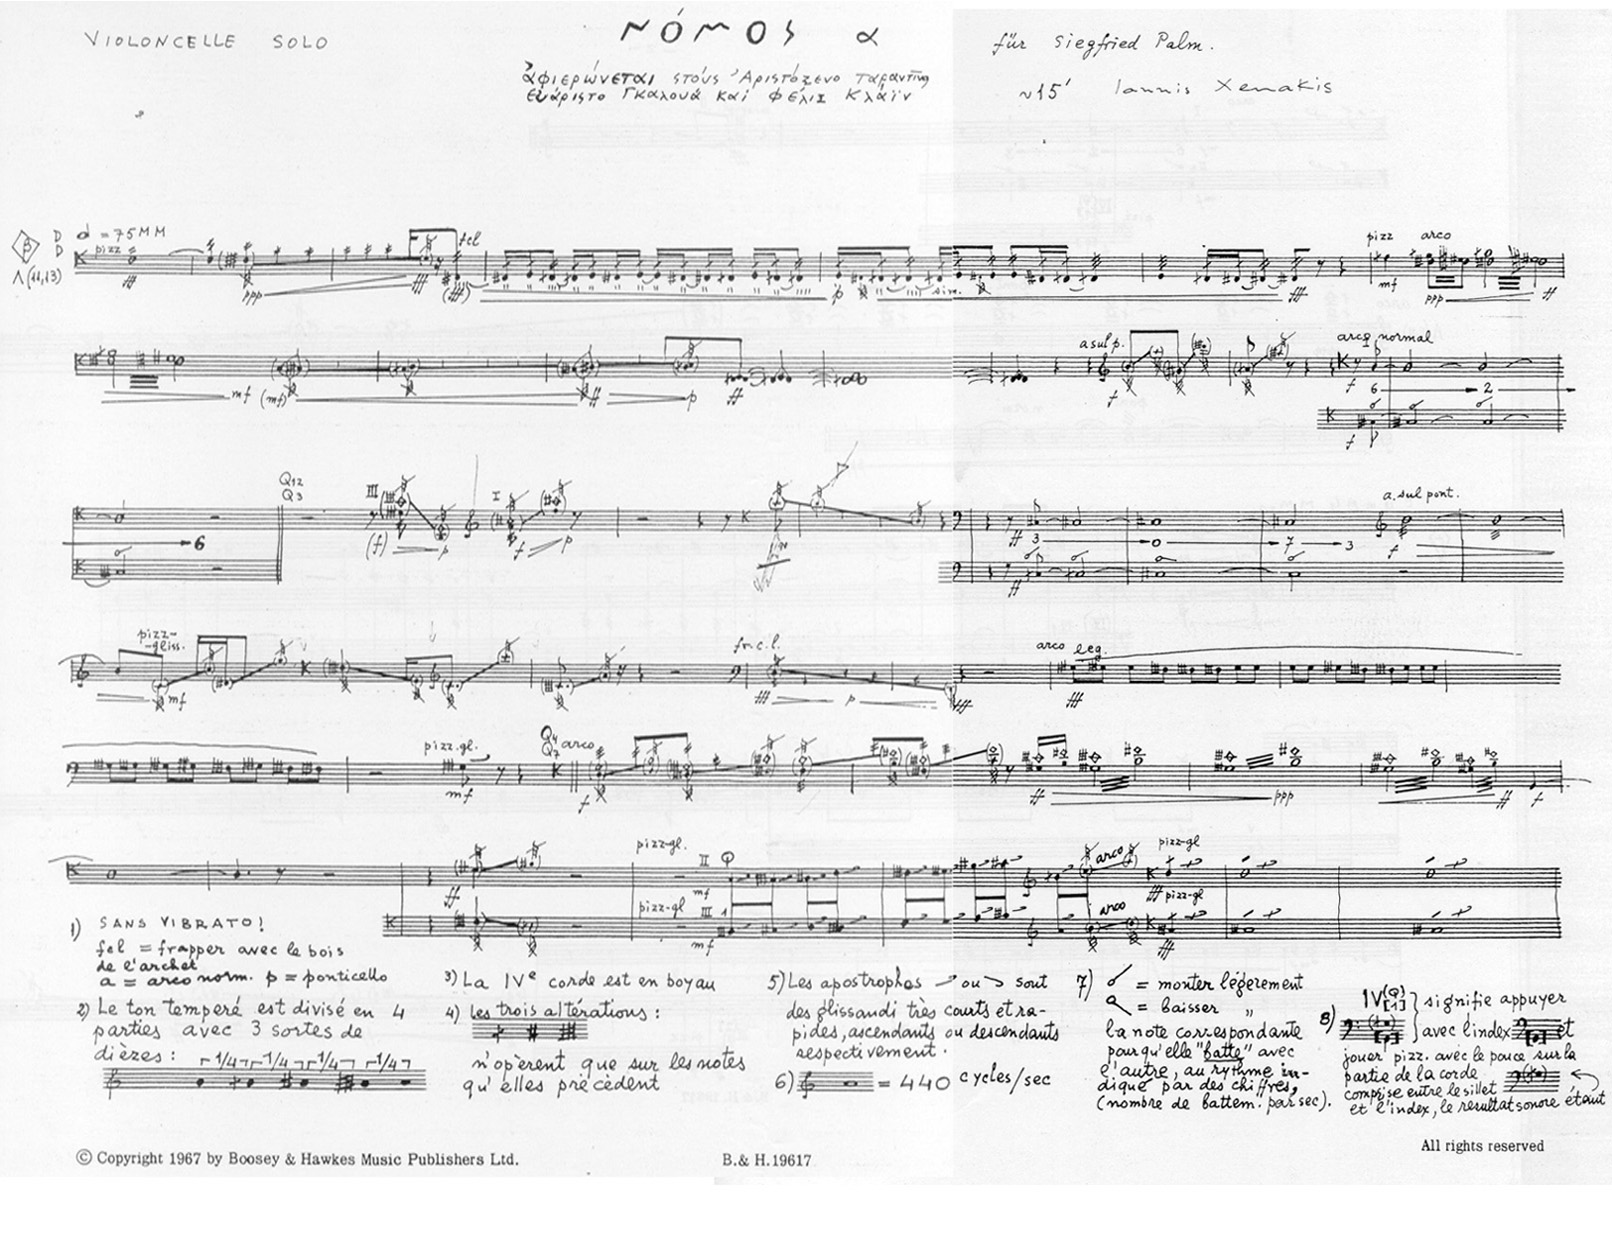 VIOLONCELLE SOLO
ΝÓΜΟS α
für Siegfried Palm.
ἀφιερώνεται στούς Ἀριστόξενο
Εὐάριστο Γκαλουά καί Φέλιξ Κλάϊν
~15'
Iannis Xenakis
D
D
Λ(11,13)
= 75MM
pizz
fff
ppp
fff
(fff)
fcl
p
sim.
fff
pizz
arco
mf
ppp
ff
mf
(mf)
ff
p
ff
a sul p.
f
arco normal
f
6
2
f
6
Q12
Q3
III
(f)
p
I
f
p
ff
3
0
7
3
ff
a. sul pont.
f
pizz-
-gliss.
mf
fr.c.l.
fff
p
fff
arco leg.
fff
pizz.gl.
mf
Q4
Q7
arco
f
ff
ppp
ff
f
ff
pizz-gl.
II
mf
arco
pizz-gl
fff
pizz-gl
III
mf
arco
pizz-gl
fff
1) SANS VIBRATO!
fcl = frapper avec le bois
de l'archet
a = arco norm. p = ponticello
2) Le ton temperé est divisé en 4
parties avec 3 sortes de
dièzes: 1/4 1/4 1/4 1/4
3) La IVe corde est en boyau
4) les trois altérations:
n'opèrent que sur les notes
qu'elles précèdent
5) Les apostrophes ou sont
des glissandi très courts et ra-
pides, ascendants ou descendants
respectivement.
6) = 440 cycles/sec
7) = monter légèrement
= baisser "
la note correspondante
pour qu'elle "batte" avec
l'autre, au rythme in-
diqué par des chiffres,
(nombre de battem. par sec).
8) IV signifie appuyer
avec l'index et
jouer pizz. avec le pouce sur la
partie de la corde
comprise entre le sillet
et l'index, le résultat sonore étant
All rights reserved
© Copyright 1967 by Boosey & Hawkes Music Publishers Ltd.
B. & H. 19617